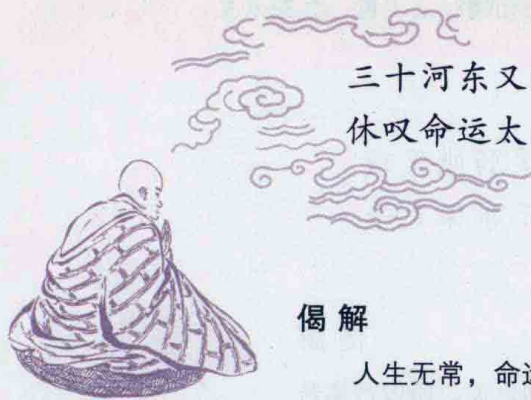 三十河东又
休叹命运太
偈解
人生无常，命